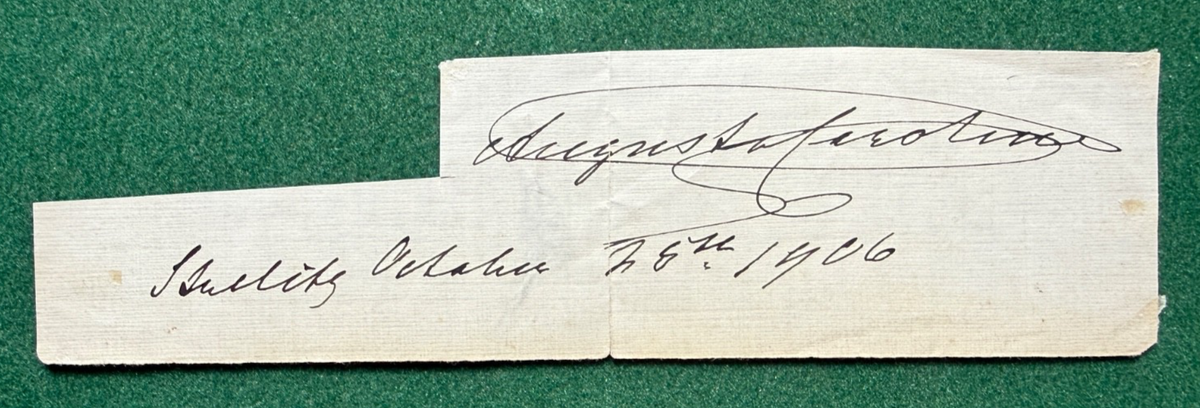 Augusta Caroline
Strelitz October 25th. 1906